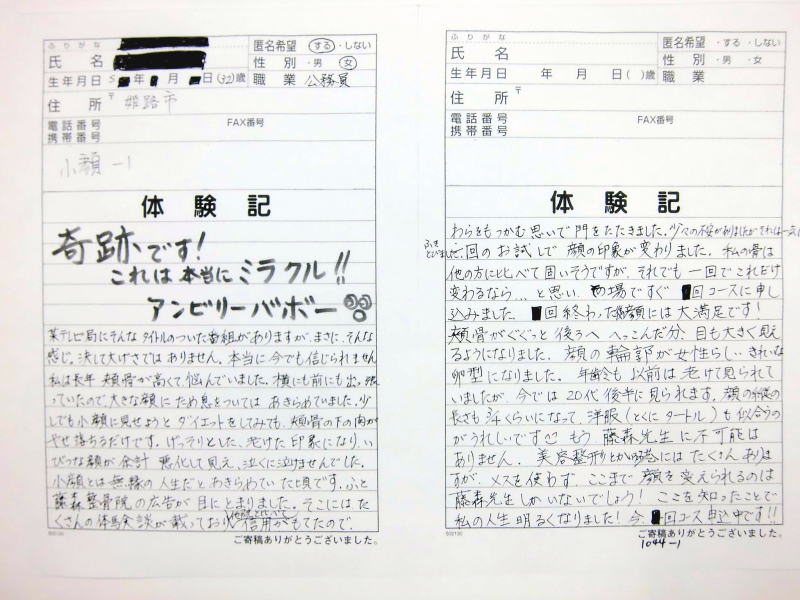 ふりがな
氏名
匿名希望 ・する・しない
性別 ・男 ・女
生年月日 S 年 月 日 (32)歳 職業 公務員
住所 〒 姫路市
電話番号 FAX番号
携帯番号
小顔-1
体験記
奇跡です!
これは本当にミラクル!!
アンビリーバボー
某テレビ局にそんなタイトルのついた番組がありますが、まさに、そんな
感じ。決して大げさではありません。本当に今でも信じられません
私は長年 頬骨が高くて、悩んでいました。横にも前にも出っ張
っていたので、大きな顔に ため息をついては あきらめていました。少
しでも小顔に見せようと ダイエットをしてみても、頬骨の下の肉が
やせ落ちるだけです。げっそりとした、老けた印象になり、い
びつな顔が余計 悪化して見え、泣くに泣けませんでした。
小顔とは無縁の人生だとあきらめていた頃です。ふと
藤森整骨院の広告が目にとまりました。そこにはた
くさんの体験談が載っており 他院と比べて 信用がもてたので、
ご寄稿ありがとうございました。
ふりがな
氏名
匿名希望 ・する ・しない
性別 ・男 ・女
生年月日 年 月 日( )歳 職業
住所 〒
電話番号 FAX番号
携帯番号
体験記
わらをもつかむ思いで門をたたきました。少々の不安がありましたがそれは一気に
ふきとびました。一回のお試しで 顔の印象が変わりました。私の骨は
他の方に比べて固いそうですが、それでも 一回でこれだけ
変わるなら…と思い、場ですぐ 回コースに申し
込みました。 回終わった 顔には大満足です!
頬骨がぐぐっと後ろへ へっこんだ分、目も大きく見え
るようになりました。顔の輪郭が女性らしい きれいな
卵型になりました。年齢も 以前は老けて見られて
いましたが、今では20代後半に見られます。顔の縦の
長さも3/4くらいになって、洋服(とくにタートル)も似合うの
がうれしいです もう藤森先生に不可能は
ありません。美容整形とか はたくさんありま
すが、メスを使わず、ここまで 顔を変えられるのは
藤森先生しかいないでしょう! ここを知ったことで
私の人生明るくなりました!今、 回コース申込中です!!
ご寄稿ありがとうございました。
1044-1